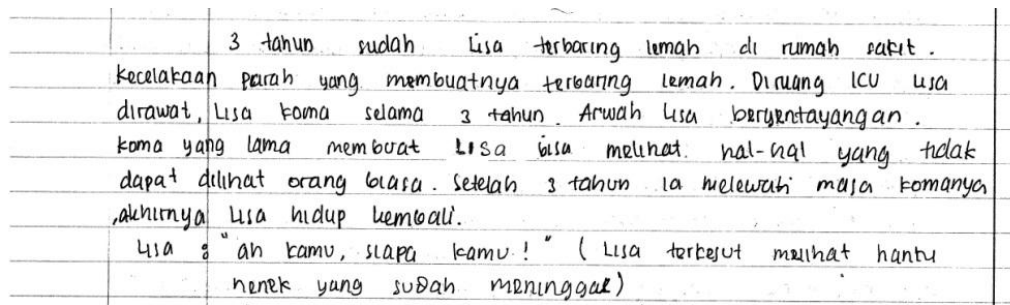 3 tahun sudah Lisa terbaring lemah di rumah sakit.
Kecelakaan parah yang membuatnya terbaring lemah. Diruang ICU Lisa
dirawat, Lisa koma selama 3 tahun. Arwah Lisa bergentayangan.
Koma yang lama membuat Lisa bisa melihat hal-hal yang tidak
dapat dilihat orang biasa. Setelah 3 tahun ia melewati masa komanya
,akhirnya Lisa hidup kembali.
Lisa : "ah kamu, siapa kamu!" (Lisa terkejut melihat hantu
nenek yang sudah meninggal)